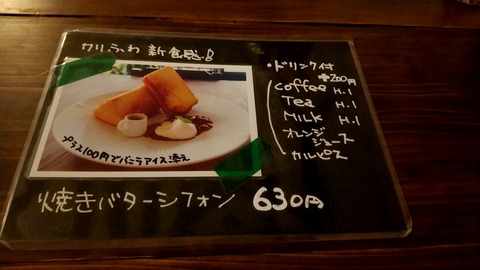 カリふわ 新食感!
プラス100円でバニラアイス添え
焼きバターシフォン 630円
・ドリンク付
+200円
Coffee H.I
Tea H.I
MILK H.I
オレンジ
ジュース
カルピス